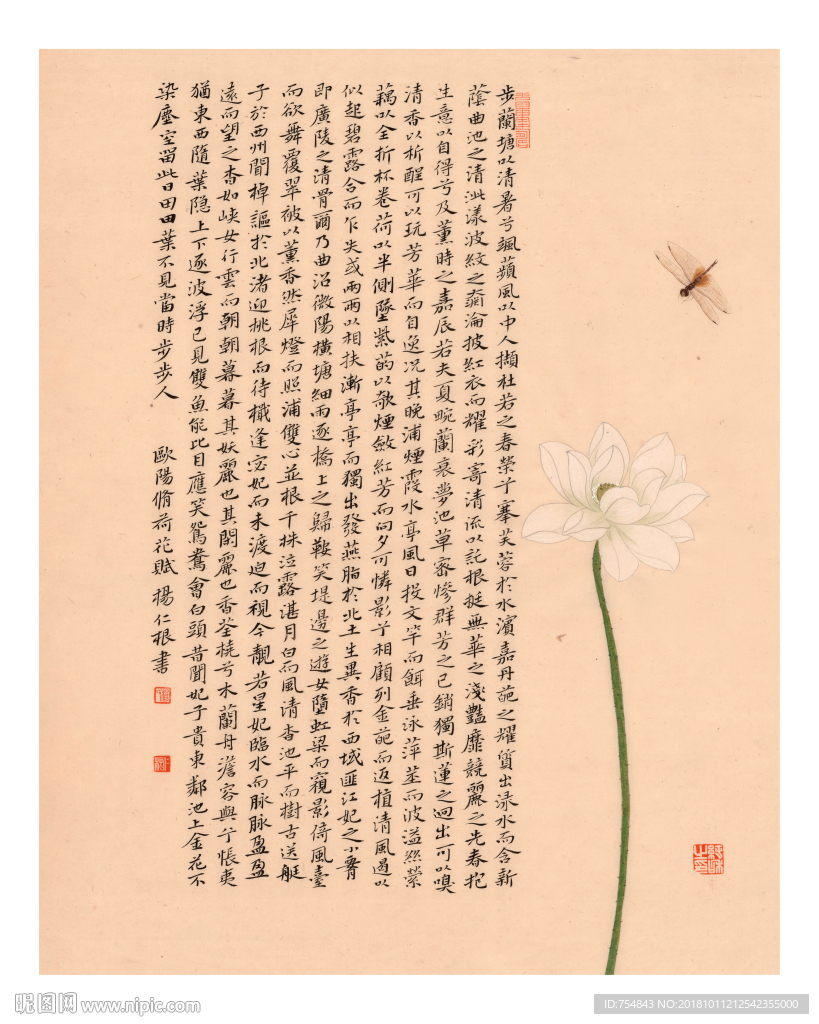 步蘭塘以清暑兮颯蘋風以中人擷杜若之春榮兮搴芙蓉於水濱嘉丹葩之耀質出渌水而含新
蔭曲池之清泚漾波紋之奫淪披紅衣而耀彩寄清流以託根挺無華之淺豔靡競麗之先春抱
生意以自得兮及薰時之嘉辰若夫夏畹蘭衰夢池草密慘群芳之已銷獨斯蓮之迥出可以嗅
清香以析酲可以玩芳華而自逸况其晚浦煙霞水亭風日投文竿而餌垂泳萍莖而波溢煞縈
藕以全折杯卷荷以半側墜紫菂以欹煙斂紅芳而向夕可憐影兮相顧列金葩而返植清風過以
似起碧露合而乍失或兩兩以相扶漸亭亭而獨出發燕脂於北土生異香於西域匪江妃之小胥
即廣陵之清骨爾乃曲沼微陽橫塘細雨逐橋上之歸鞍笑堤邊之遊女墮虹梁而窺影倚風臺
而欲舞覆翠被以薰香然犀燈而照浦雙心並根千株泣露湛月白而風清杏池平而樹古送艇
子於西州聞棹謳於北渚迎桃根而待檝逢宓妃而未渡迫而視今靚若星妃臨水而脉脉盈盈
遠而望之杳如峽女行雲而朝朝暮暮其妖麗也其閑麗也香荃橈兮木蘭舟澹容與兮悵夷
猶東西隨葉隐上下逐波浮已見雙魚能比目應笑鴛鴦會白頭昔聞妃子貴東鄰池上金花不
染塵空留此日田田葉不見當時步步人　歐陽脩荷花賦　楊仁根書
昵图网 www.nipic.com
ID:754843 NO:20181011212542355000